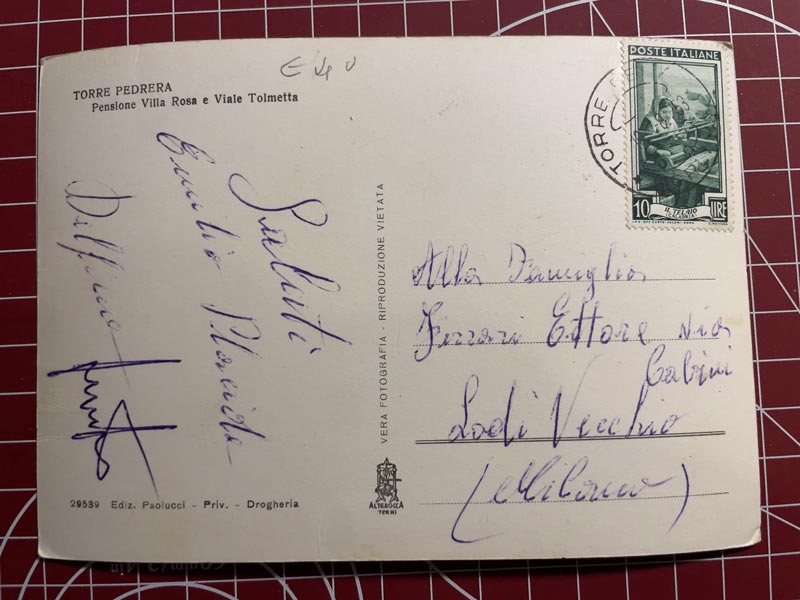 TORRE PEDRERA
Pensione Villa Rosa e Viale Tolmetta
Saluti
Emilio Placida
Delfina
VERA FOTOGRAFIA - RIPRODUZIONE VIETATA
29539 Ediz. Paolucci - Priv. - Drogheria
ALTEROCCA
TERNI
POSTE ITALIANE
TORRE
10 LIRE
IL TELAIO
(CALABRIA)
Alla Famiglia
Ferrari Ettore via
Cabini
Lodi Vecchio
(Milano)